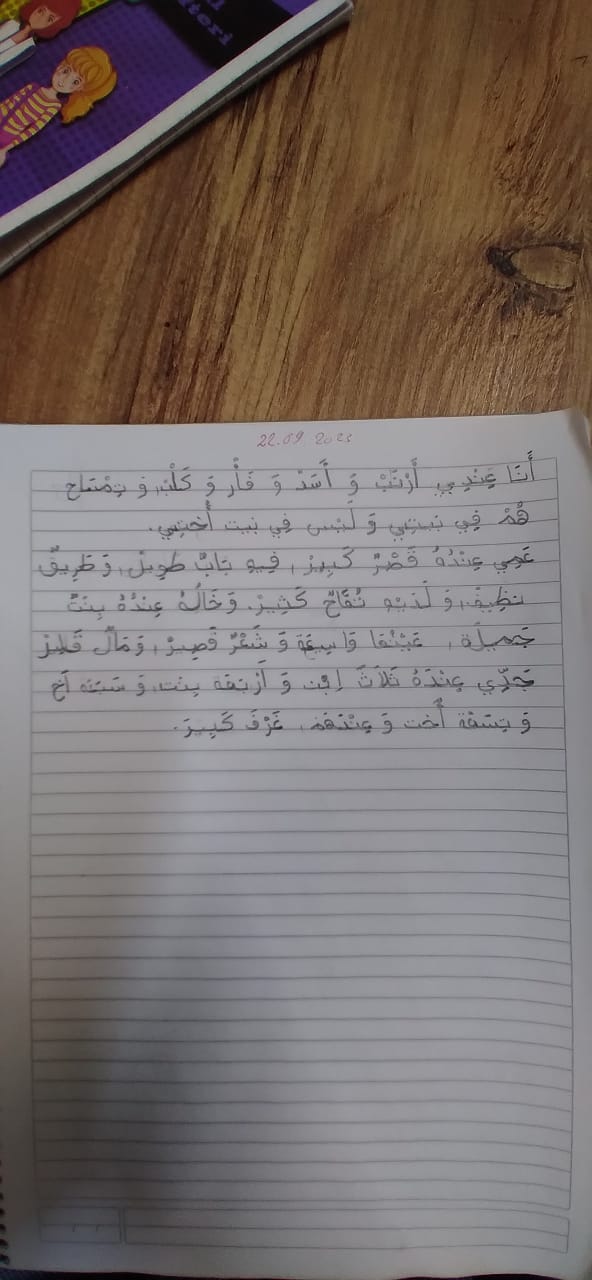 itori
22.09.2023
أَنَا عِنْدِي أَرْنَبْ وَ أَسَدْ وَ فَأْر وَ كَلْب، وَ تِمْسَاح
هُمْ فِي بَيتِي وَ لَيْس فِي بَيت أُختِي.
عَمِي عِنْدُهُ قَصْرٌ كَبِيرْ، فِيهِ بَابٌ طَوِيلْ، وَ طَرِيقٌ
نَظِيفْ، وَ لَدَيهِ تُفَاحٌ كَثِيرْ. وَ خَالُهُ عِنْدُهُ بِنتٌ
جَمِيلَة، عَيْنُهَا وَاسِعَة وَ شَعْرٌ قَصِيرْ، وَ مَالٌ قَلِيلْ
جَدِّي عِنْدَهُ ثَلَاثَ اِبْن وَ أَرْبَعَة بِنت، وَ سَبْعَة أَخ
وَ تِسْعَة أُخت وَ عِنْدَهُمْ، غُرَفَ كَبِيرَ.